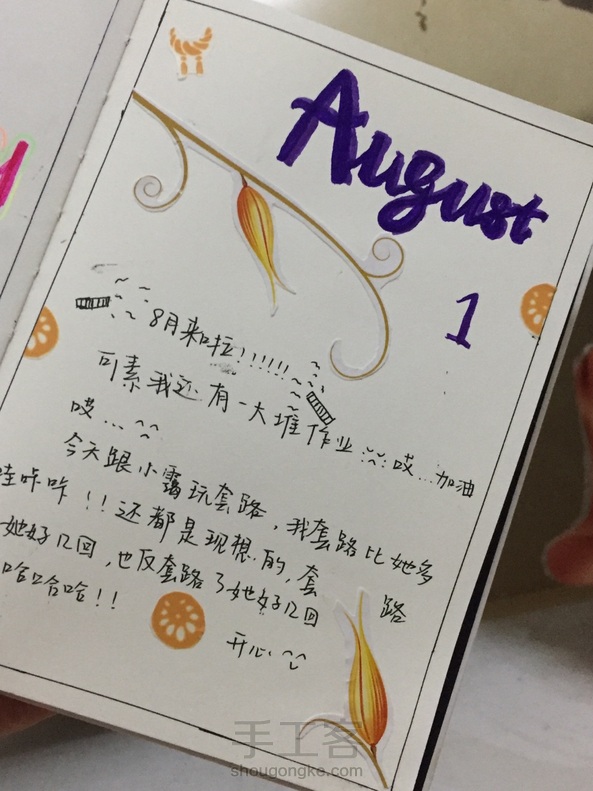 August
1
8月来啦!!!!!!
可素我还有一大堆作业 哎...加油
哎...
今天跟小露玩套路，我套路比她多
哇咔咔!!还都是现想的,套路
她好几回,也反套路了她好几回
哈哈哈哈!!
开心.
手工客
shougongke.com